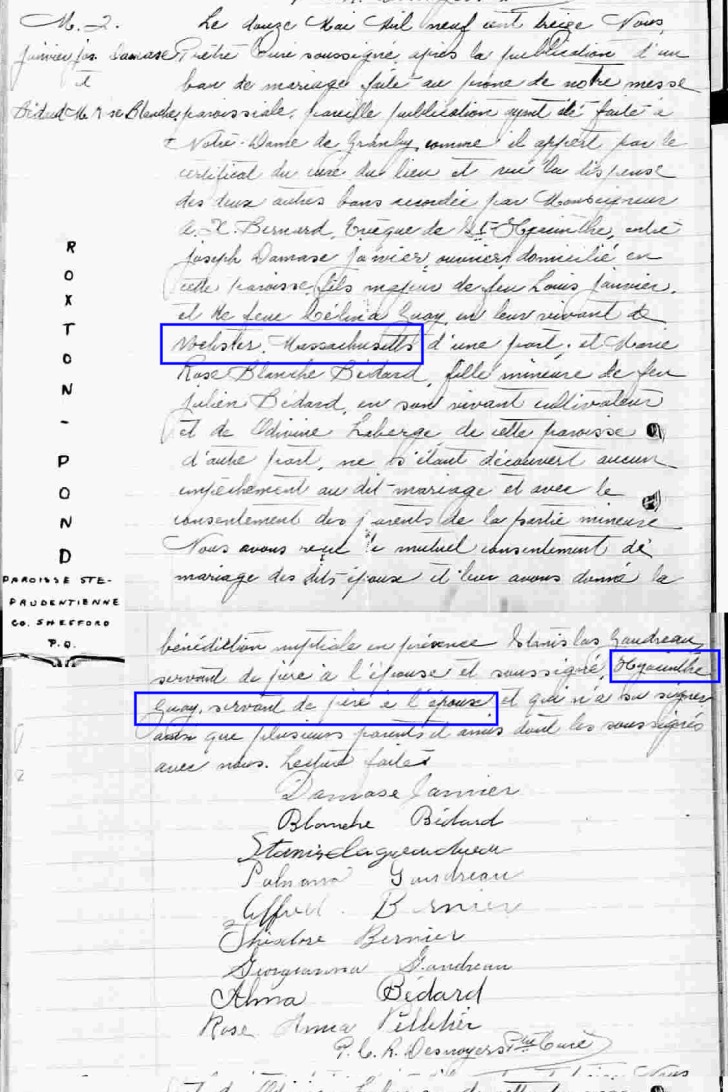 M. 2.
Janvier Jos. Damase
et
Bédard M. Rose Blanche
Le douze Mai Mil neuf cent treize Nous,
Prêtre Curé soussigné, après la publication d'un
ban de mariage faite au prône de notre messe
paroissiale, pareille publication ayant été faite à
Notre-Dame de Granby, comme il appert par le
certificat du curé du lieu et vu la dispense
des deux autres bans accordée par Monseigneur
A. X. Bernard, Evêque de St-Hyacinthe, entre
Joseph Damase Janvier, ouvrier, domicilié en
cette paroisse, fils majeur de feu Louis Janvier,
et de feue Célina Guay, en leur vivant de
Webster, Massachusetts d'une part; et Marie
Rose Blanche Bédard, fille mineure de feu
Julien Bédard, en son vivant cultivateur
et de Odivine Laberge de cette paroisse
d'autre part, ne s'étant découvert aucun
empêchement au dit mariage et avec le
consentement des parents de la partie mineure
Nous avons reçu le mutuel consentement de
mariage des dits époux et leur avons donné la
ROXTON-POND
PAROISSE STE-
PRUDENTIENNE
CO. SHEFFORD
P.Q.
bénédiction nuptiale en présence Stanislas Gaudreau,
servant de père à l'épouse et soussigné, Hyacinthe
Guay, servant de père à l'épouse et qui n'a su signer
ainsi que plusieurs parents et amis dont les soussignés
avec nous. Lecture faite
Damase Janvier
Blanche Bédard
Stanislas gaudreau
Gaudreau
Alfred Bernier
Bernier
Georgianna Gaudreau
Alma Bédard
Rose Anna Pelletier
P. C. A. Desnoyers Ptre Curé